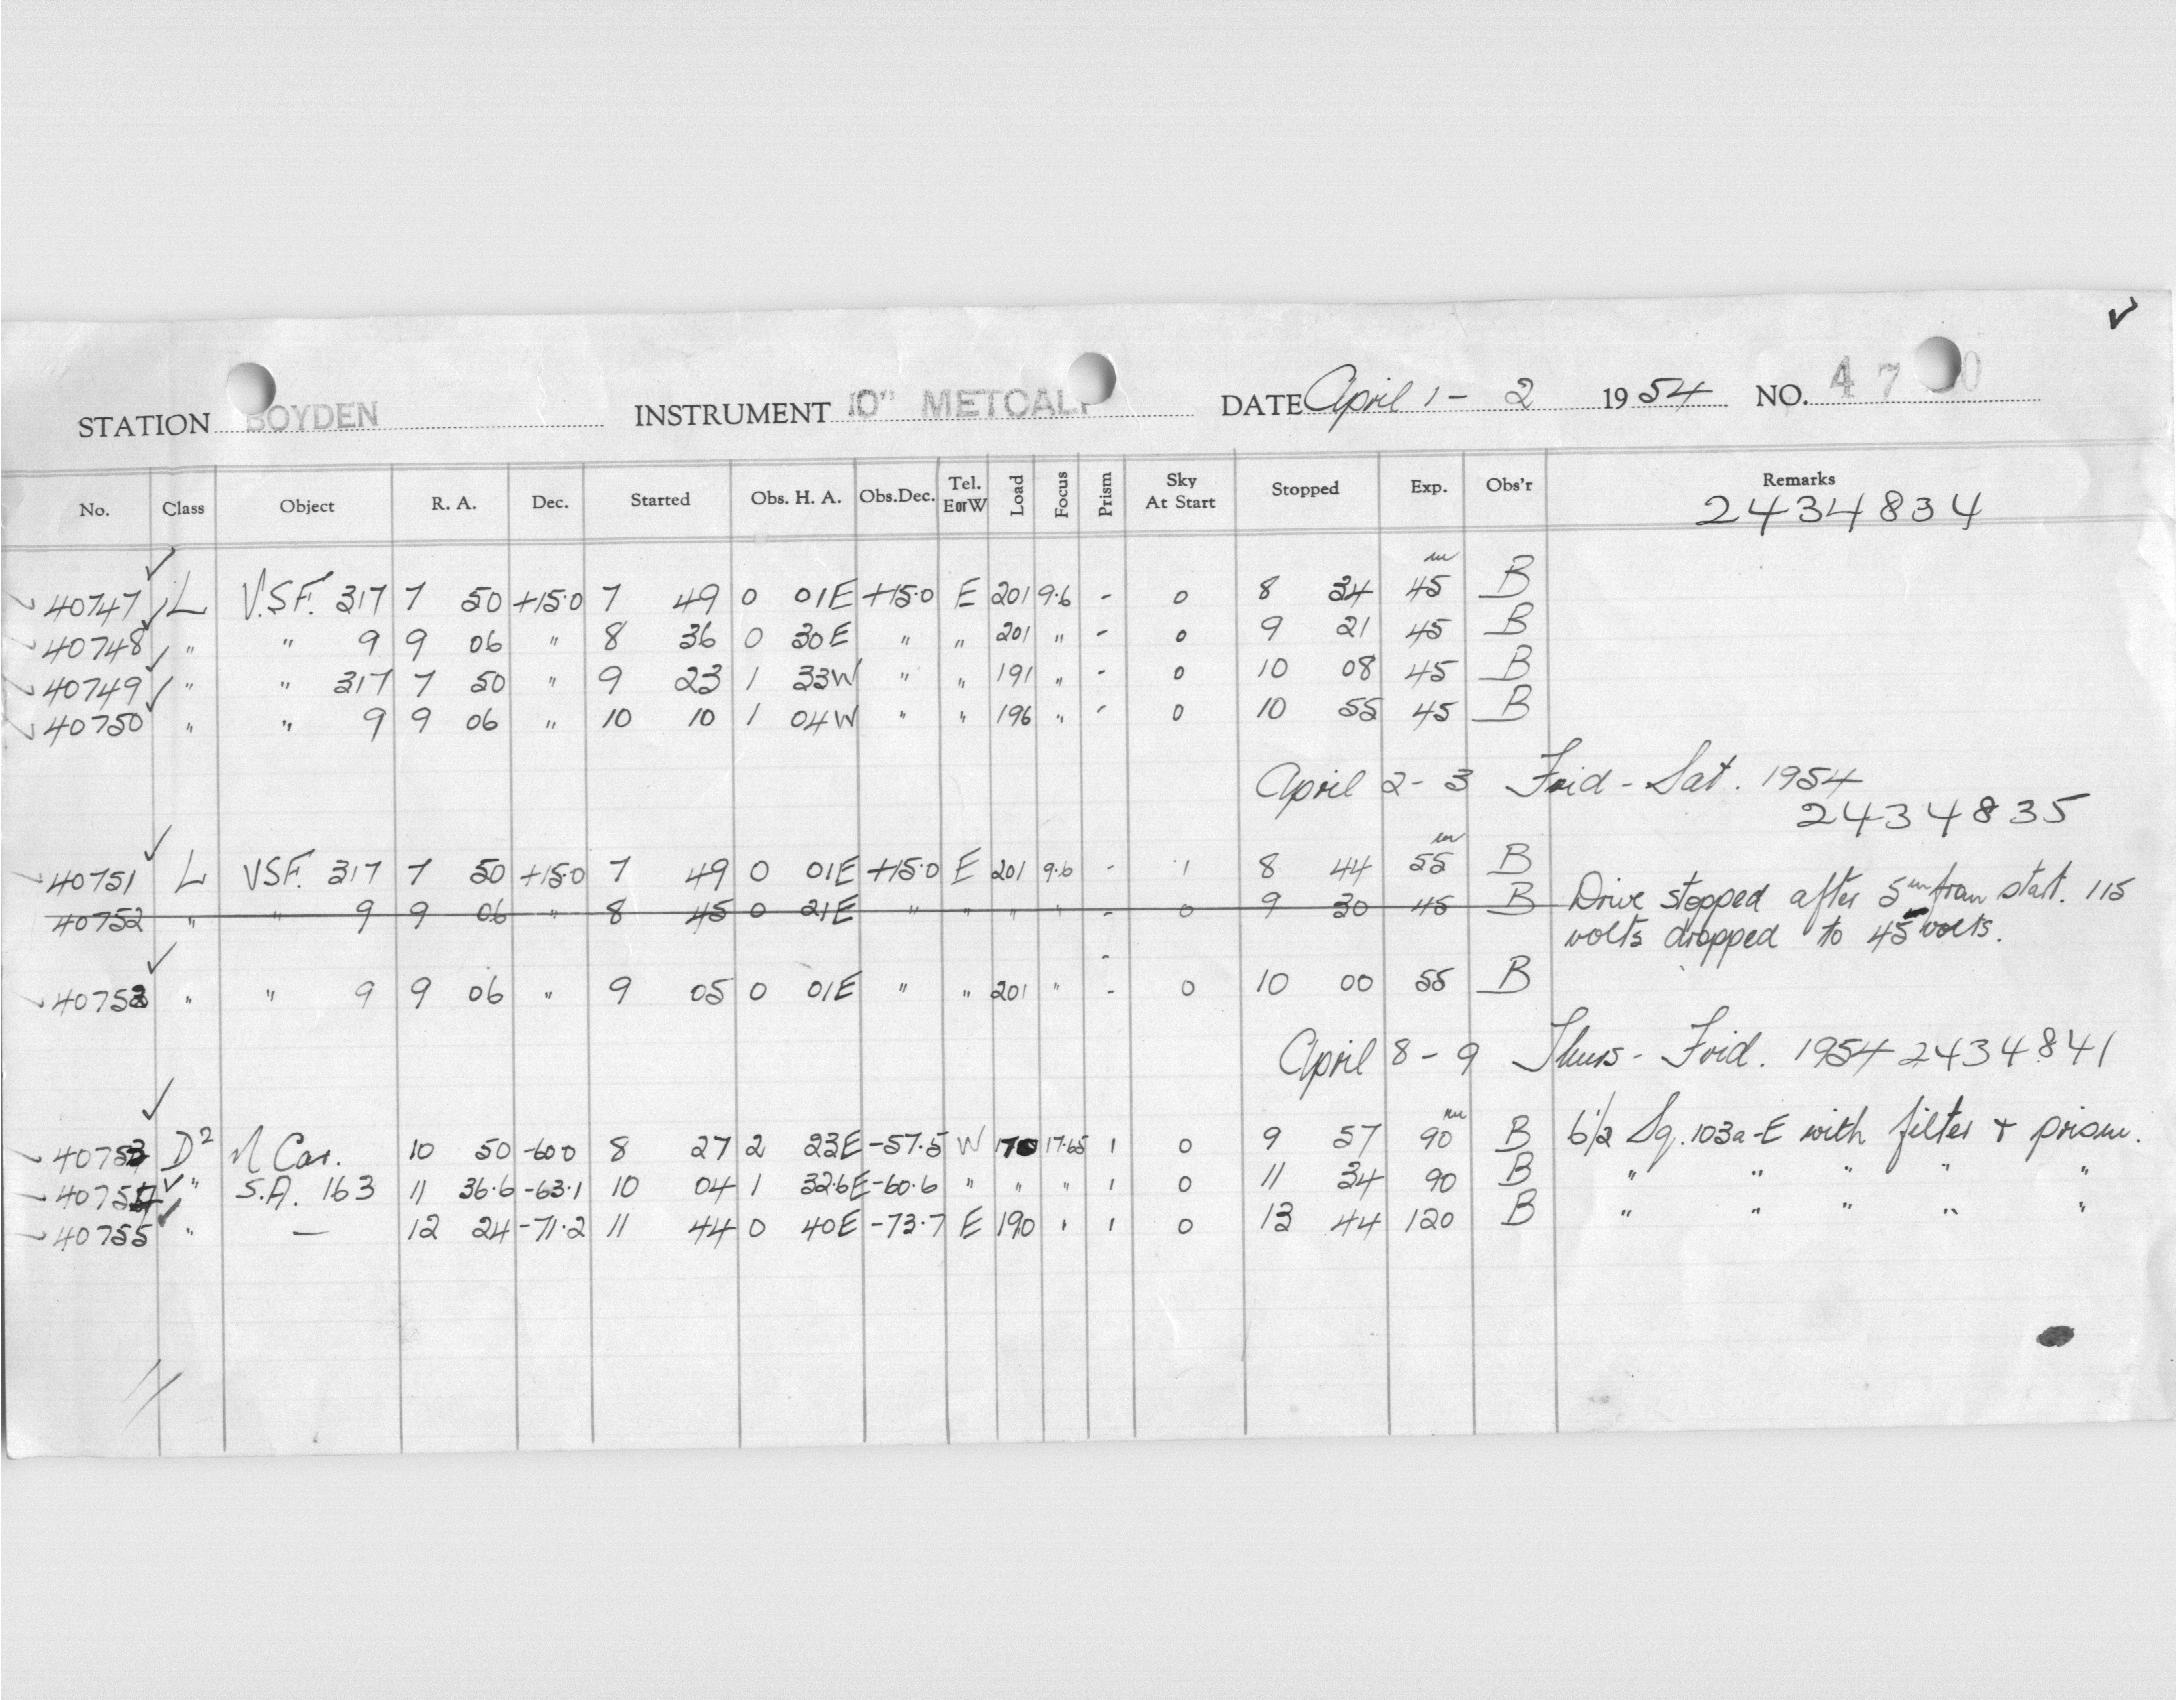 ✓
STATION BOYDEN INSTRUMENT 10" METCALF DATE April 1 - 2 1954 NO. 47 0
No. Class Object R. A. Dec. Started Obs. H. A. Obs.Dec. Tel. E or W Load Focus Prism Sky At Start Stopped Exp. Obs'r Remarks
2434834
40747 L V.S.F. 317 7 50 +15.0 7 49 0 01E +15.0 E 201 9.6 - 0 8 34 45m B
40748 " " 9 9 06 " 8 36 0 30E " " 201 " - 0 9 21 45 B
40749 " " 317 7 50 " 9 23 1 33W " " 191 " - 0 10 08 45 B
40750 " " 9 9 06 " 10 10 1 04W " " 196 " - 0 10 55 45 B
April 2 - 3 Frid - Sat. 1954
2434835
40751 L VSF. 317 7 50 +15.0 7 49 0 01E +15.0 E 201 9.6 - 1 8 44 55m B
40752 " " 9 9 06 " 8 45 0 21E " " " " - 0 9 30 45 B Drive stopped after 5m from start. 115
volts dropped to 45 volts.
4075 " " 9 9 06 " 9 05 0 01E " " 201 " - 0 10 00 55 B
April 8 - 9 Thurs - Frid. 1954 2434841
4075 D² η Car. 10 50 -60.0 8 27 2 23E -57.5 W 170 17.65 1 0 9 57 90m B 6½ Sq. 103a-E with filter + prism.
40754 " S.A. 163 11 36.6 -63.1 10 04 1 32.6E -60.6 " " " 1 0 11 34 90 B " " " " "
40755 " — 12 24 -71.2 11 44 0 40E -73.7 E 190 " 1 0 13 44 120 B " " " " "